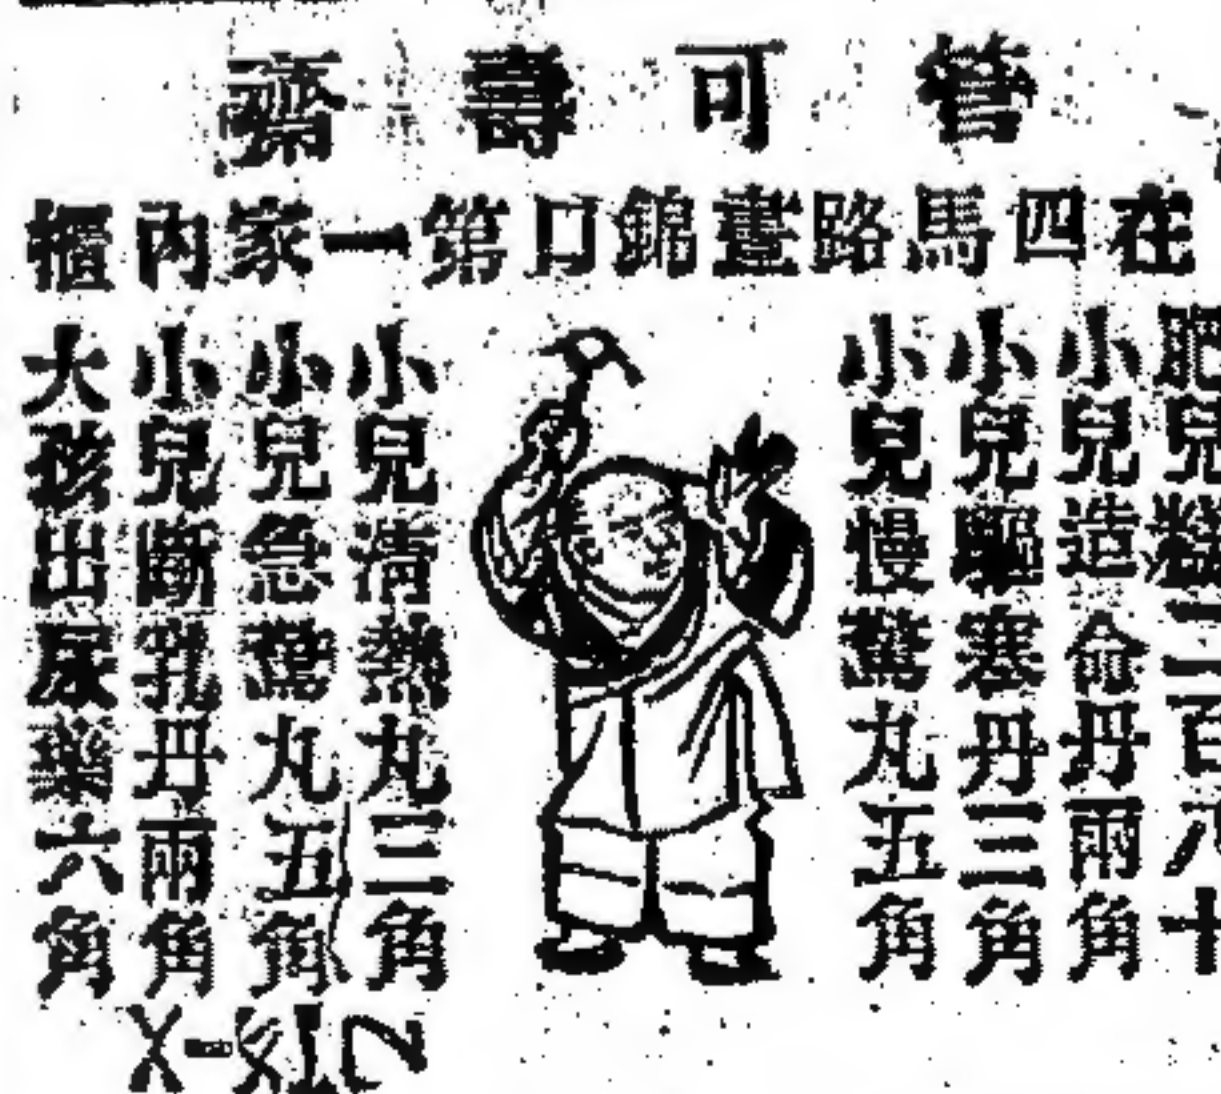 管可壽齋
在四馬路畫錦口第一家內櫃
肥兒糕二百八十
小兒造命丹兩角
小兒驅寒丹三角
小兒慢驚丸五角
小兒清熱丸三角
小兒急驚丸五角
小兒斷乳丹兩角
大孩出尿藥六角